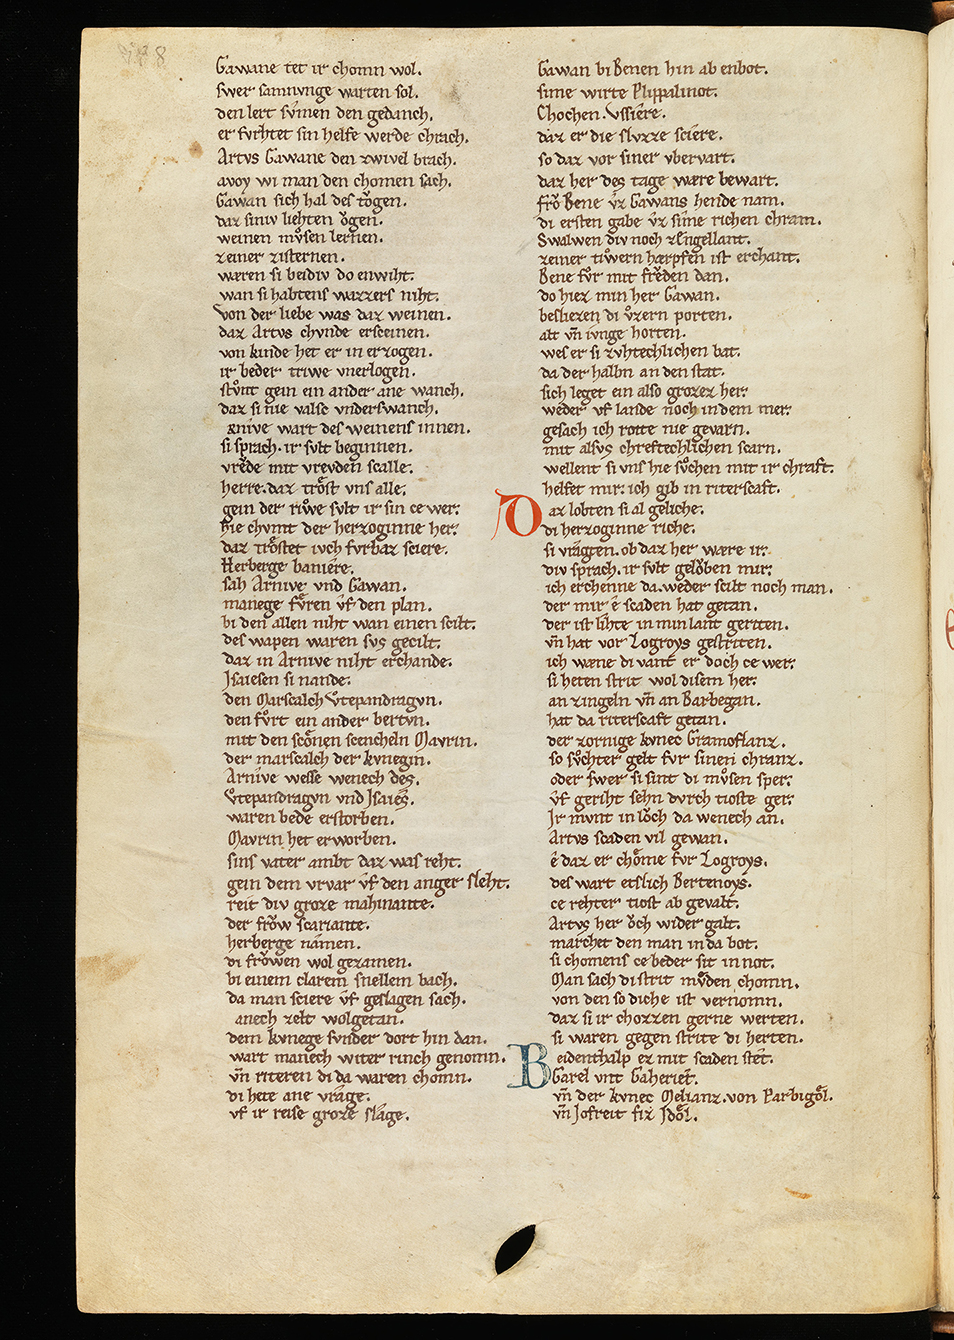 Gawane tet ir chomn wol.
swer samnvnge warten sol.
den lert svͦmen den gedanch.
er fvrhtet sin helfe werde chrach.
Artvs Gawane den zwivel brach.
avoy wi man den chomen sach.
Gawan sich hal des tǒgen.
daz siniv liehten ǒgen.
weinen mvͦsen lernen.
zeiner zisternen.
waren si beidiv do enwiht.
wan si habtens wazzers niht.
von der liebe was daz weinen.
daz Artvs chvnde ersceinen.
von kinde het er in erzogen.
ir beder triwe vnerlogen.
stvͦnt gein ein ander ane wanch.
daz si nie valsc vnderswanch.
Arnive wart des weinens innen.
si sprach. ir svlt beginnen.
vrǒde mit vrevden scalle.
herre. daz trǒst vns alle.
gein der riwe svlt ir sin ce wer.
hie chvmt der herzoginne her.
daz trǒstet ivch fvrbaz sciere.
Herberge baniere.
sah Arnive vnd Gawan.
manege fvͤren vf den plan.
bi den allen niht wan einen scilt.
des wapen waren svs gecilt.
daz in Arnive niht erchande.
Jsaiesen si nande.
den Marscalch vtepandragvn.
den fvͦrt ein ander bertvn.
mit den scǒnen scencheln Mavrin.
der marscalch der kvnegin.
Arnive wesse wenech des.
vtepandragvn vnd Jsaies.
waren bede erstorben.
Mavrin het erworben.
sins vater ambt daz was reht.
gein dem vrvar vf den anger sleht.
reit div groze mahinante.
der frǒw scariante.
herberge namen.
di frǒwen wol gezamen.
bi einem clarem snellem bach.
da man sciere vf geslagen sach.
anech zelt wolgetan.
dem kvnege svnder dort hin dan.
wart manech witer rinch genomn.
vn̄ riteren di da waren chomn.
di hete ane vrage.
vf ir reise groze slage.
Gawan bi Benen hin ab enbot.
sime wirte Plippalinot.
Chochen. vssiere.
daz er die slvzze sciere.
so daz vor siner vbervart.
daz her des tage wære bewart.
frǒ Bene vz Gawans hende nam.
di ersten gabe vz sime richen chram.
Swalwen div noch zEngellant.
zeiner tiwern hærpfen ist erchant.
Bene fvr mit frǒden dan.
do hiez min her Gawan.
besliezen di vͦzern porten.
alt vn̄ ivnge horten.
wes er si zvhtechlichen bat.
da der halbn an den stat.
sich leget ein also grozez her.
weder vf lande noch in dem mer.
gesach ich rotte nie gevarn.
mit alsvs chreftechlichen scarn.
wellent si vns hie svͦchen mit ir chraft.
helfet mir. ich gib in riterscaft.
Daz lobten si al geliche.
di herzoginne riche.
si vragten. ob daz her wære ir.
div sprach. ir svlt gelǒben mir.
ich erchenne da. weder scilt noch man.
der mir ê scaden hat getan.
der ist lihte in min lant geriten.
vn̄ hat vor Logroys gestriten.
ich wæne di vant er doch ce wer.
si heten strit wol disem her.
an zingeln vn̄ an Barbegan.
hat da riterscaft getan.
der zornige kvnec Gramoflanz.
so sv̊chter gelt fvr sinen chranz.
oder swer si sint di mvͦsen sper.
vf geriht sehn dvrch tioste ger.
Ir mvnt in lǒch da wenech an.
Artvs scaden vil gewan.
ê daz er chǒme fvr Logroys.
des wart etslich Bertenoys.
ce rehter tiost ab gevalt.
Artvs her ǒch wider galt.
marchet den man in da bot.
si chomens ce beder sit in not.
Man sach di strit mvͤden chomn.
von den so diche ist vernomn.
daz si ir chozzen gerne werten.
si waren gegen strite di herten.
Beidenthalp ez mit scaden stet.
Garel vnt Gaheriet.
vn̄ der kvnec Melianz. von Parbigǒl.
vn̄ Jofreit fiz Jdǒl.